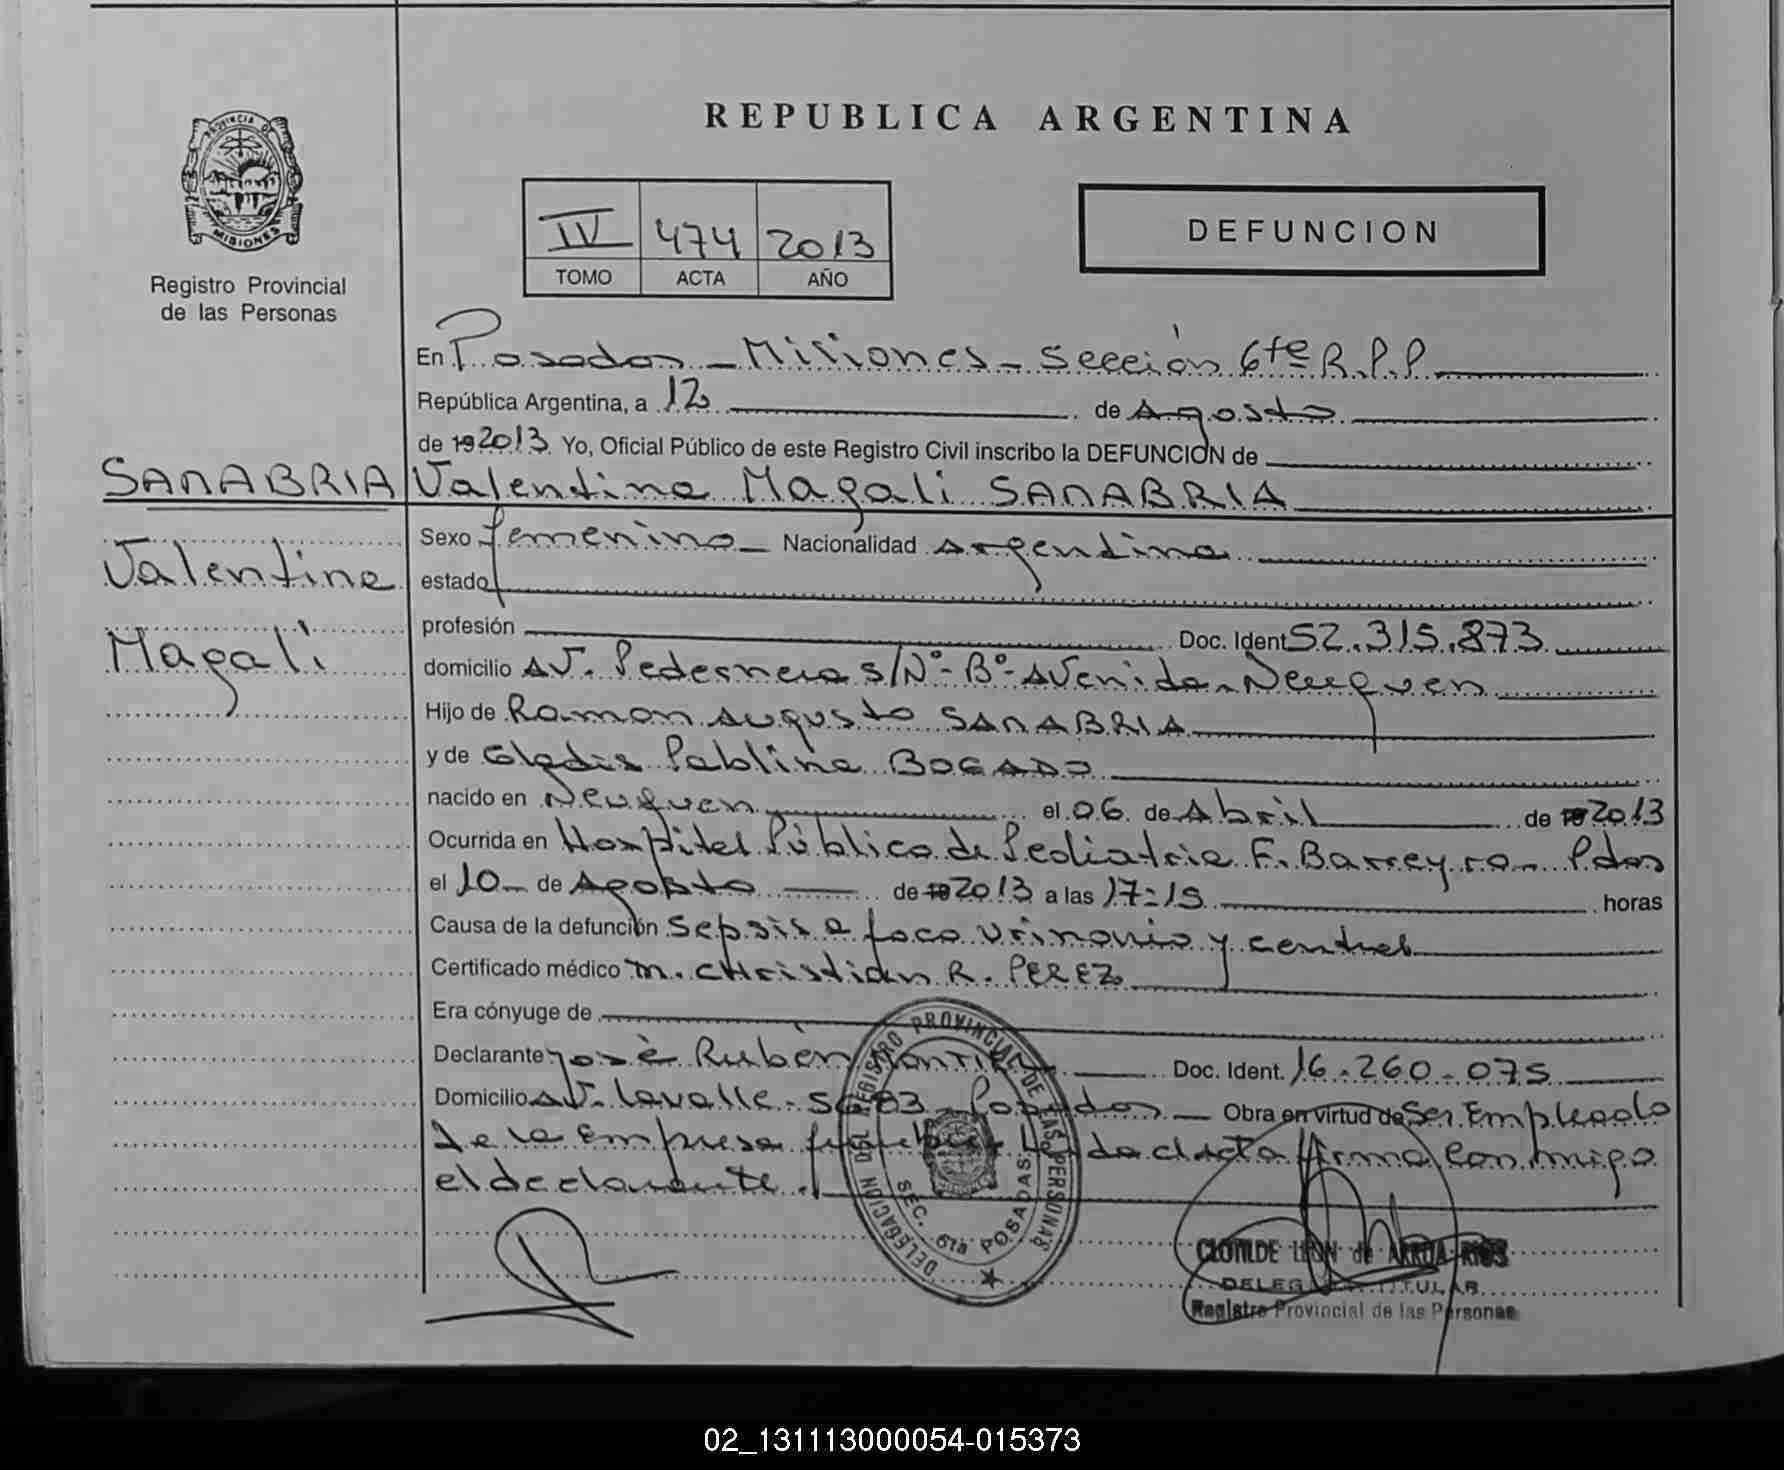 REPUBLICA ARGENTINA
PROVINCIA DE
MISIONES
Registro Provincial
de las Personas
IV 474 2013
TOMO ACTA AÑO
DEFUNCION
En Posadas - Misiones - Sección 6ta R.P.P.
República Argentina, a 12 de Agosto
de 19 2013 Yo, Oficial Público de este Registro Civil inscribo la DEFUNCION de
SANABRIA
Valentina Magali SANABRIA
Valentina
Magali
Sexo femenino - Nacionalidad Argentina
estado
profesión Doc. Ident 52.315.873
domicilio AV. Pedernera S/Nº - Bº - AVenida - Neuquen
Hijo de Ramon Augusto SANABRIA
y de Gladis Pablina BOGADO
nacido en Neuquen el 06 de Abril de 19 2013
Ocurrida en Hospital Público de Pediatria F. Barreyro - Pdas
el 10 - de Agosto de 19 2013 a las 17:15 horas
Causa de la defunción Sepsis a foco urinario y central
Certificado médico M. CHristian R. PEREZ
Era cónyuge de
Declarante José Rubén Doc. Ident. 16.260.075
Domicilio AV. Lavalle - 5683 Posadas - Obra en virtud de Ser Empleado
de la Empresa Leida el Acta firma Conmigo
el declarante.
DELEGACION DEL REGISTRO PROVINCIAL DE LAS PERSONAS
SEC. 6ta POSADAS
CLOTILDE LEON de ARRUA RIOS
DELEGADA TITULAR
Registro Provincial de las Personas
02_131113000054-015373